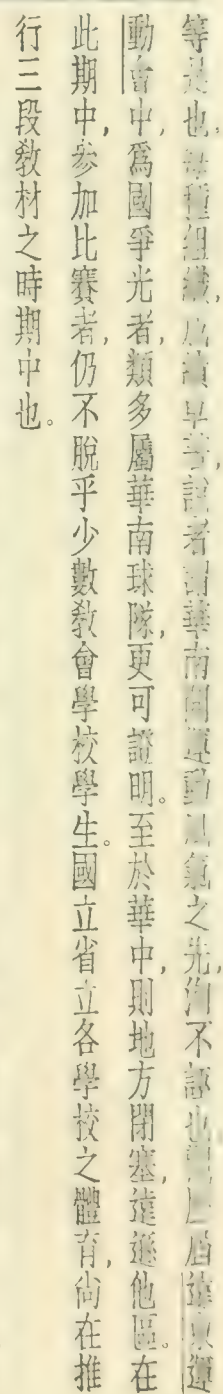 等是也,每種組織,成績卓著,說者謂華南開運動風氣之先,洵不謬也,屆遠東運
動會中,爲國爭光者,類多屬華南球隊,更可證明。至於華中,則地方閉塞,遠遜他區。在
此期中,參加比賽者,仍不脫乎少數敎會學校學生。國立省立各學校之體育,尙在推
行三段敎材之時期中也。